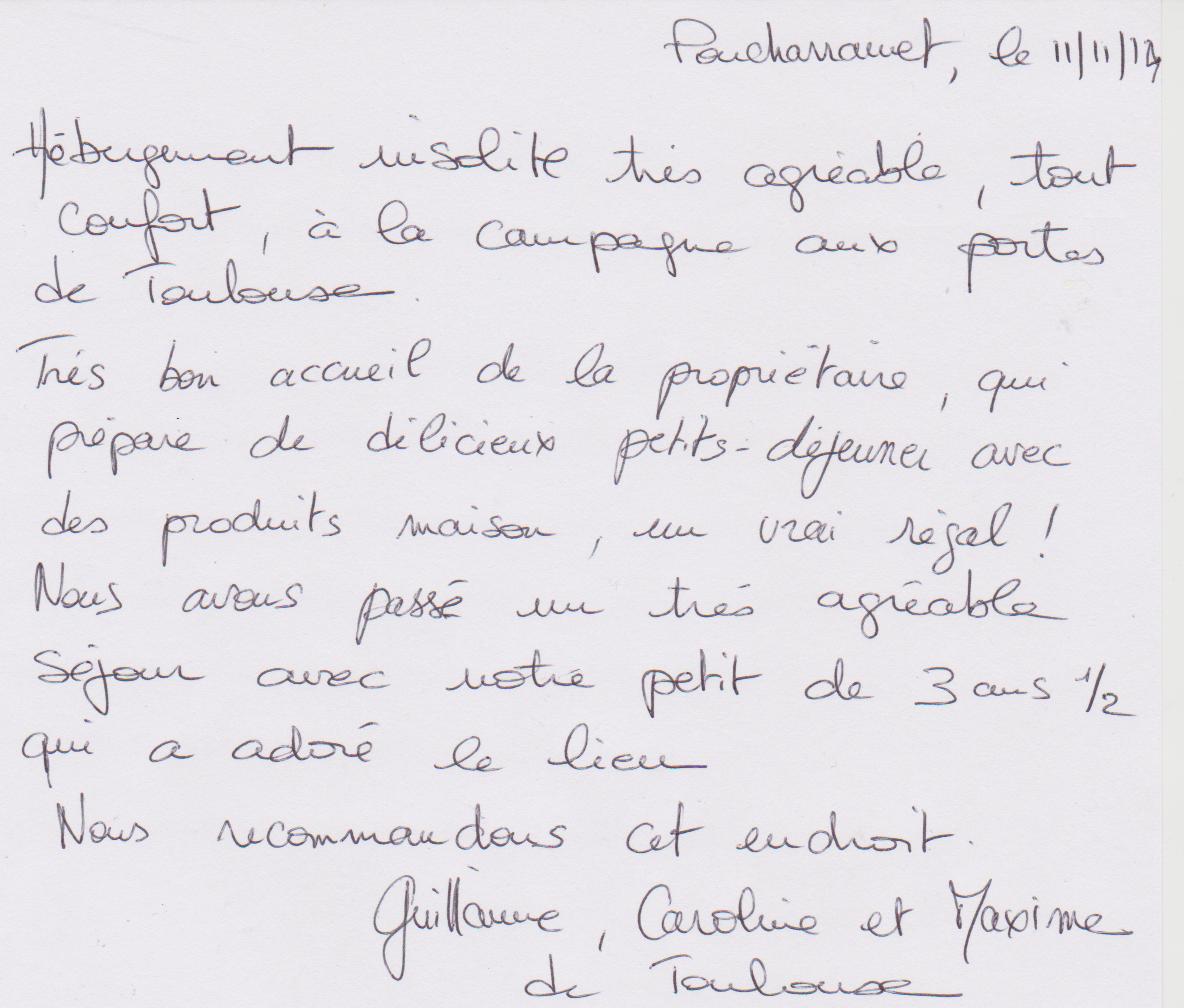 Poucharramet, le 11/11/14
Hébergement insolite très agréable, tout
confort, à la campagne aux portes
de Toulouse.
Très bon accueil de la propriétaire, qui
prépare de délicieux petits-déjeuner avec
des produits maison, un vrai régal !
Nous avons passé un très agréable
séjour avec notre petit de 3 ans 1/2
qui a adoré le lieu
Nous recommandons cet endroit.
Guillaume, Caroline et Maxime
de Toulouse